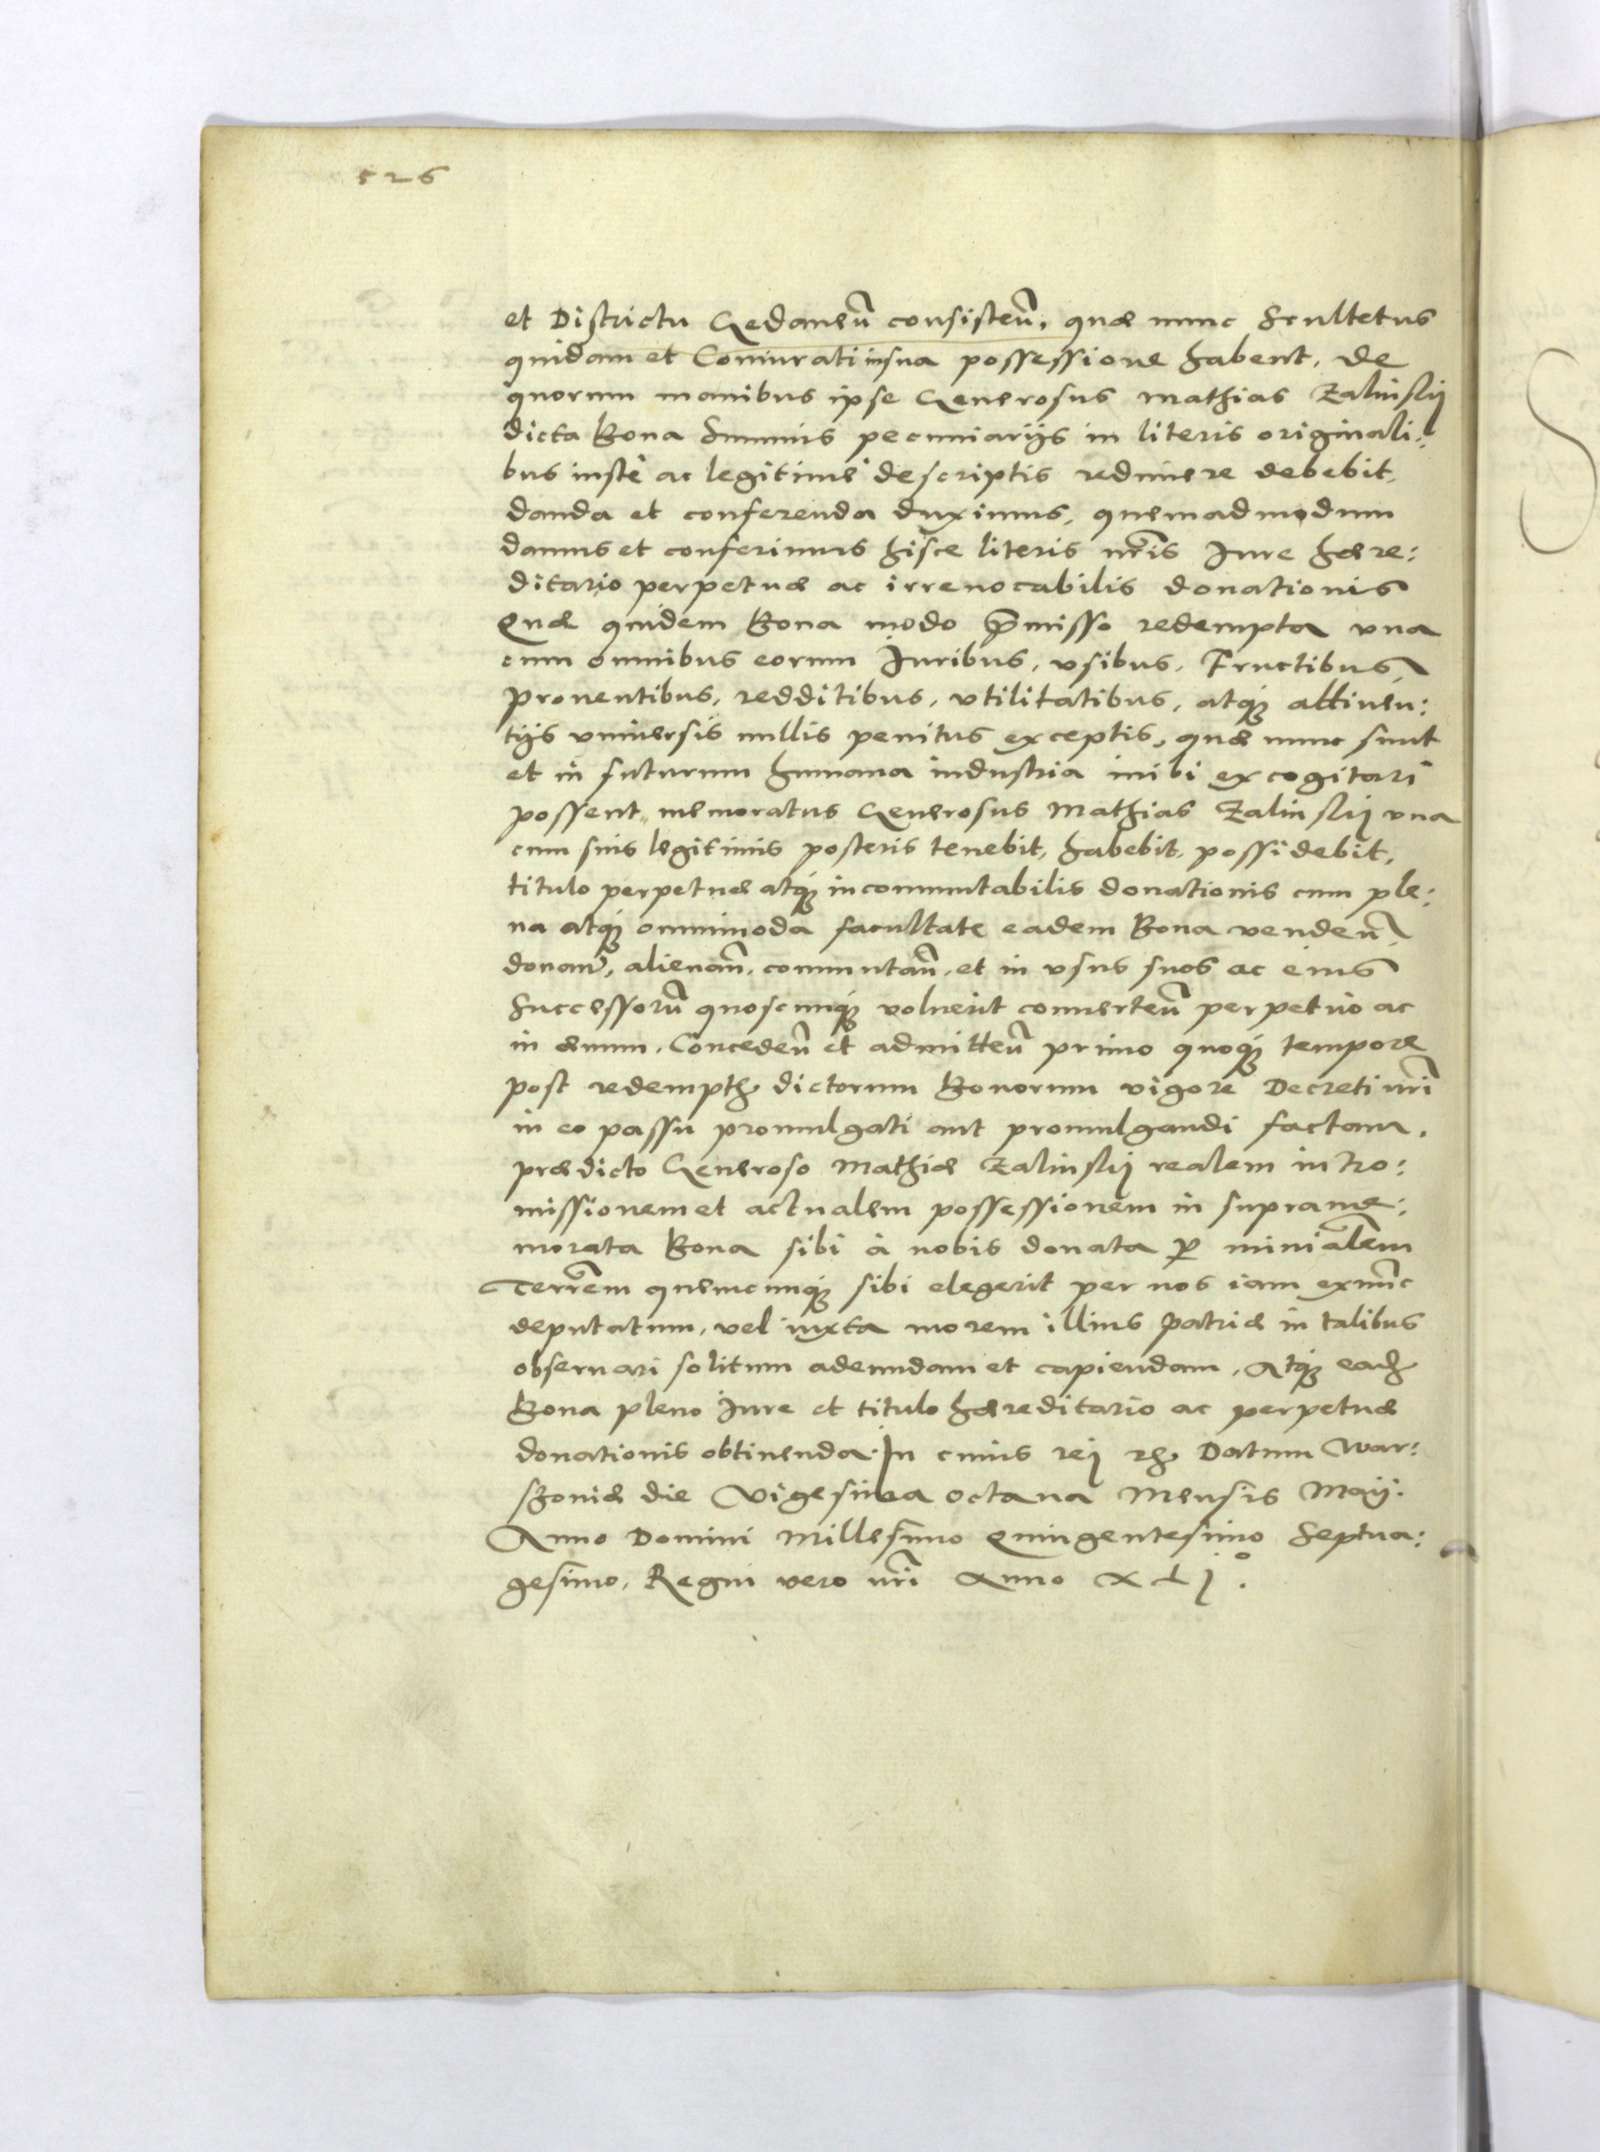 526
et Districtu Gedaneñ consisteñ, quæ nunc Scultetus
quidam et Coniurati in sua possessione habent, de
quorum manibus ipse Generosus Mathias Zalinskij
dicta Bona Summis pecuniarijs in literis originali:
bus iuste ac legitime descriptis redimere debebit,
danda et conferenda duximus, quemadmodum
damus et conferimus hisce literis nr̃is Iure hære:
ditario perpetuæ ac irreuocabilis donationis
Quæ quidem Bona modo p̃misso redempta vna
cum omnibus eorum Iuribus, vsibus, Fructibus,
prouentibus, redditibus, vtilitatibus, atq; attinen:
tijs vniuersis nullis penitus exceptis, quæ nunc sunt
et in futurum humana industria inibi excogitari
possent, memoratus Generosus Mathias Zalinskij vna
cum suis legitimis posteris tenebit, habebit, possidebit,
titulo perpetuæ atq; incommutabilis donationis cum ple:
na atq; omnimoda facultate eadem Bona vendeñ,
donañ, alienañ, commutañ, et in vsus suos ac eius
Successorũ quoscunq; voluerit conuerteñ perpetuo ac
in æuum. Concedeñ et admitteñ primo quoq; tempore
post redempt. dictorum Bonorum vigore Decreti nr̃i
in eo passu promulgati aut promulgandi factam,
prædicto Generoso Mathiæ Zalinskij realem intro:
missionem et actualem possessionem in supra me:
morata Bona sibi à nobis donata p minialem
Terrem quemcunq; sibi elegerit per nos iam exnunc
deputatum, vel iuxta morem illius Patriæ in talibus
obseruari solitum adeundam et capiendam, Atq; ead.
Bona pleno Iure et titulo hæreditario ac perpetuæ
donationis obtinenda. In cuius rei rc. Datum War:
schouiæ die Vigesima octaua Mensis Maij.
Anno Domini Millesimo Quingentesimo Septua:
gesimo, Regni vero nr̃i Anno XLj°.